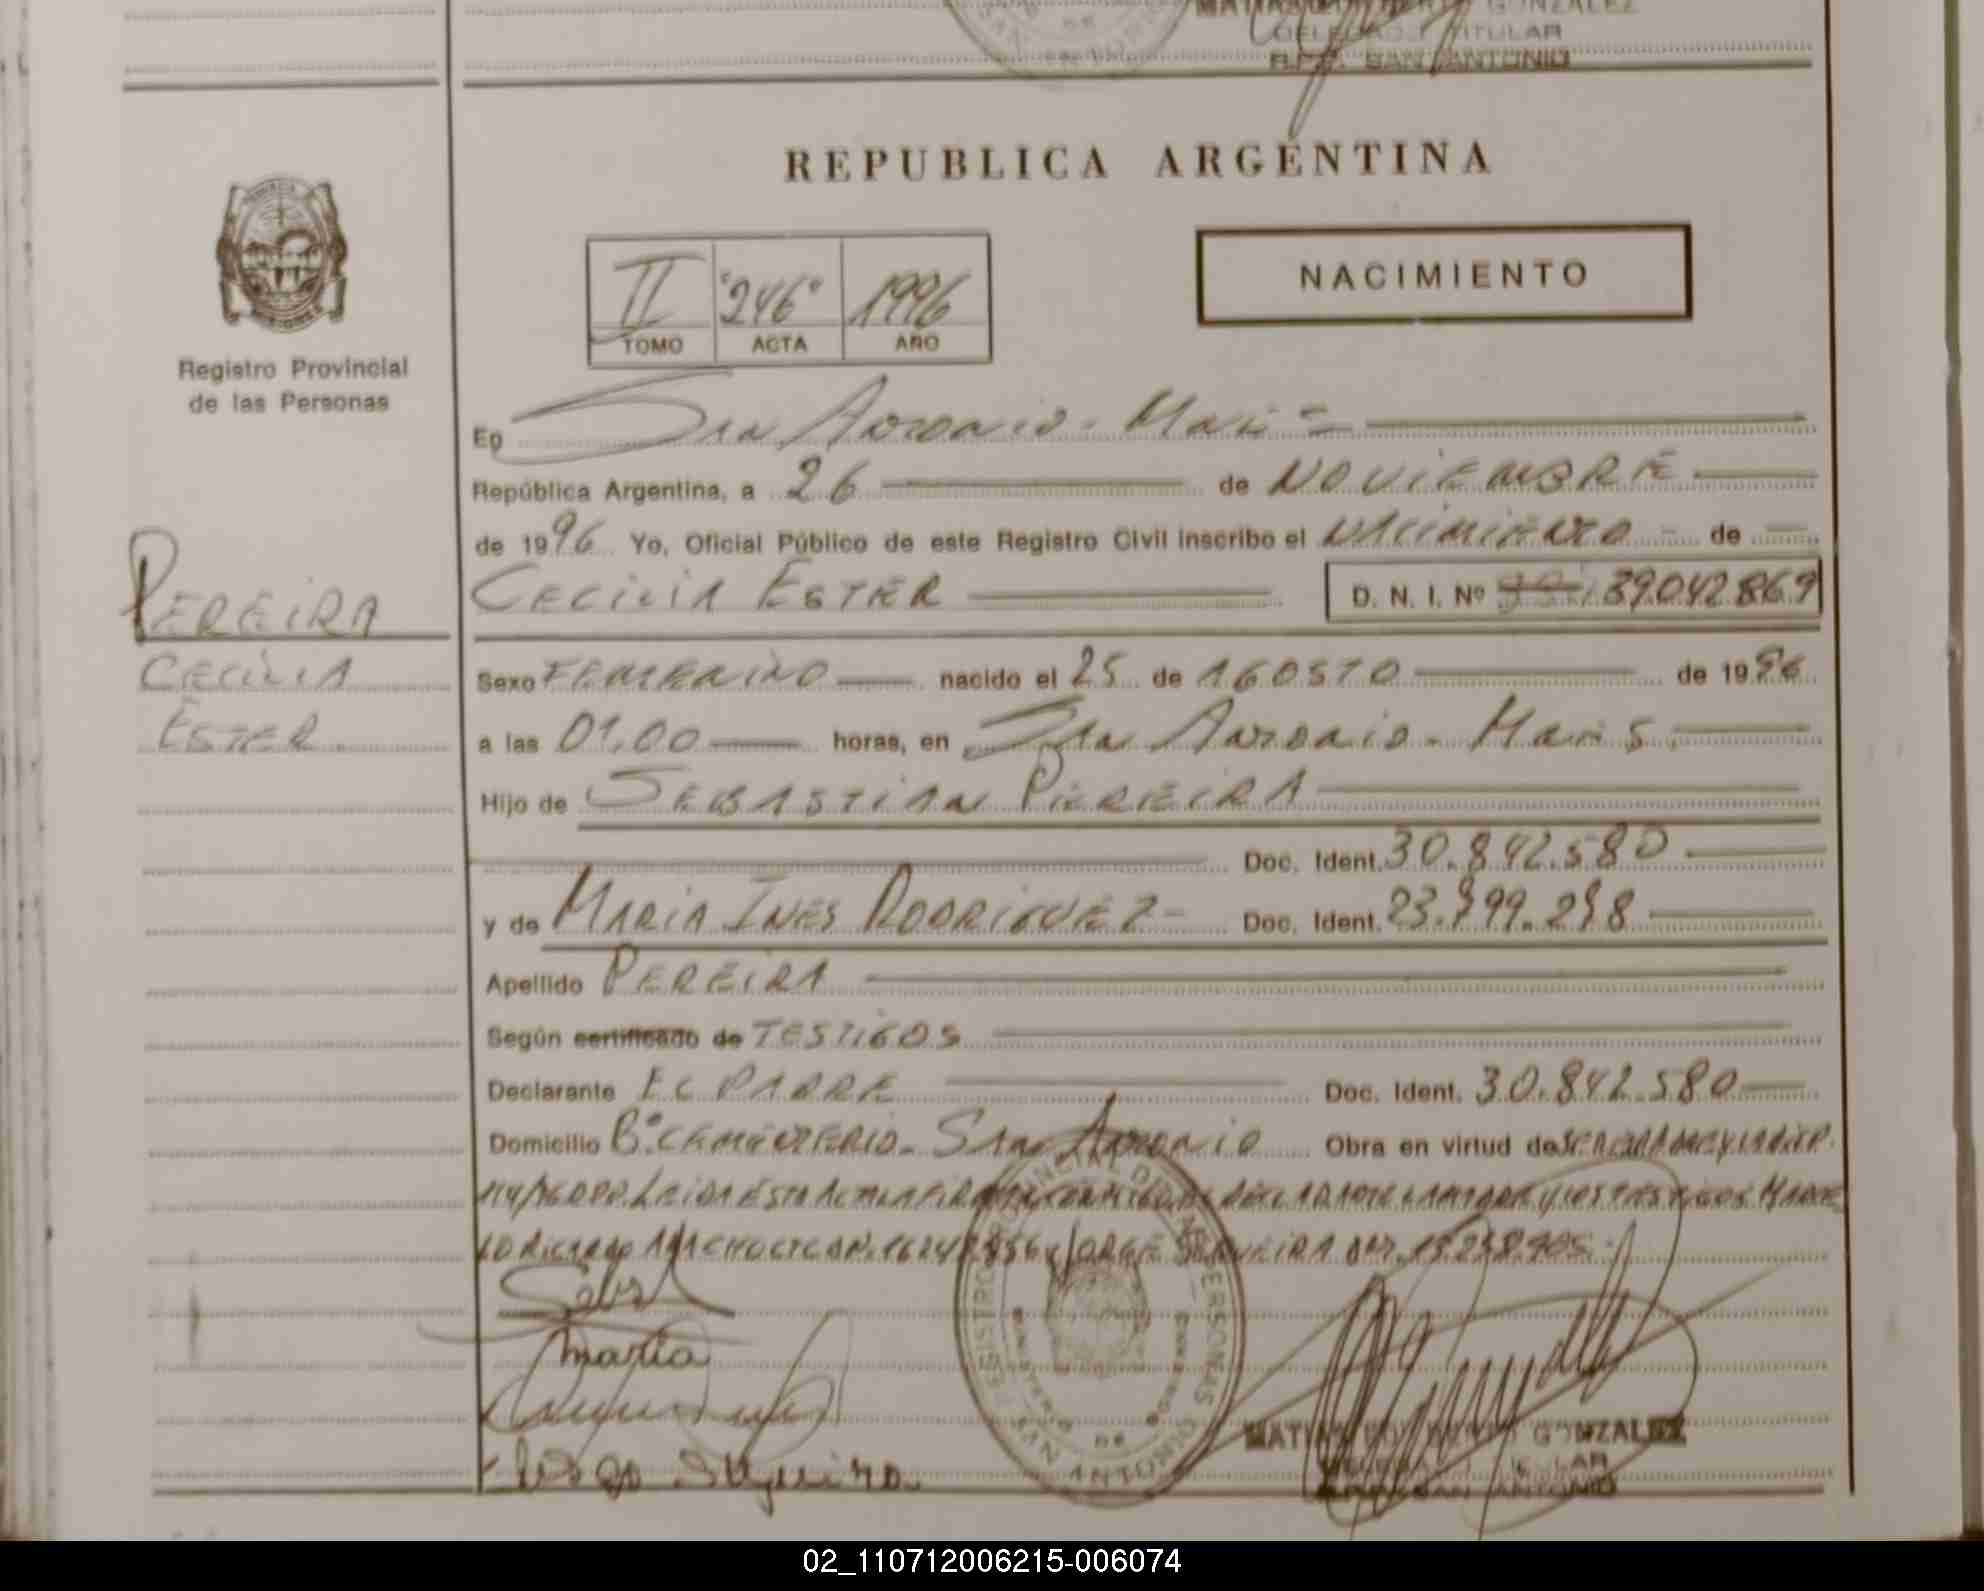 GONZALEZ
DELEGADO TITULAR
R.P.P. SAN ANTONIO
REPUBLICA ARGENTINA
II "246" 1996
TOMO ACTA AÑO
NACIMIENTO
Registro Provincial
de las Personas
En San Antonio - Mnes
República Argentina, a 26 de NOVIEMBRE
de 1996 Yo, Oficial Público de este Registro Civil inscribo el NACIMIENTO - de
PEREIRA
CECILIA ESTER D. N. I. Nº 39042869
CECILIA
Sexo FEMENINO nacido el 25 de AGOSTO de 1996
ESTER
a las 01,00 horas, en San Antonio - Mnes
Hijo de SEBASTIAN PEREIRA
Doc. Ident. 30.842.580
y de MARIA INES RODRIGUEZ - Doc. Ident.
Apellido PEREIRA
Según certificado de TESTIGOS
Declarante EL PADRE Doc. Ident. 30.842.580
Domicilio Bº CEMENTERIO - San Antonio Obra en virtud de
LEIDA ESTA ACTA LA FIRMAN
Maria
REGISTRO PROVINCIAL DE LAS PERSONAS
SAN ANTONIO
GONZALEZ
SAN ANTONIO
02_110712006215-006074